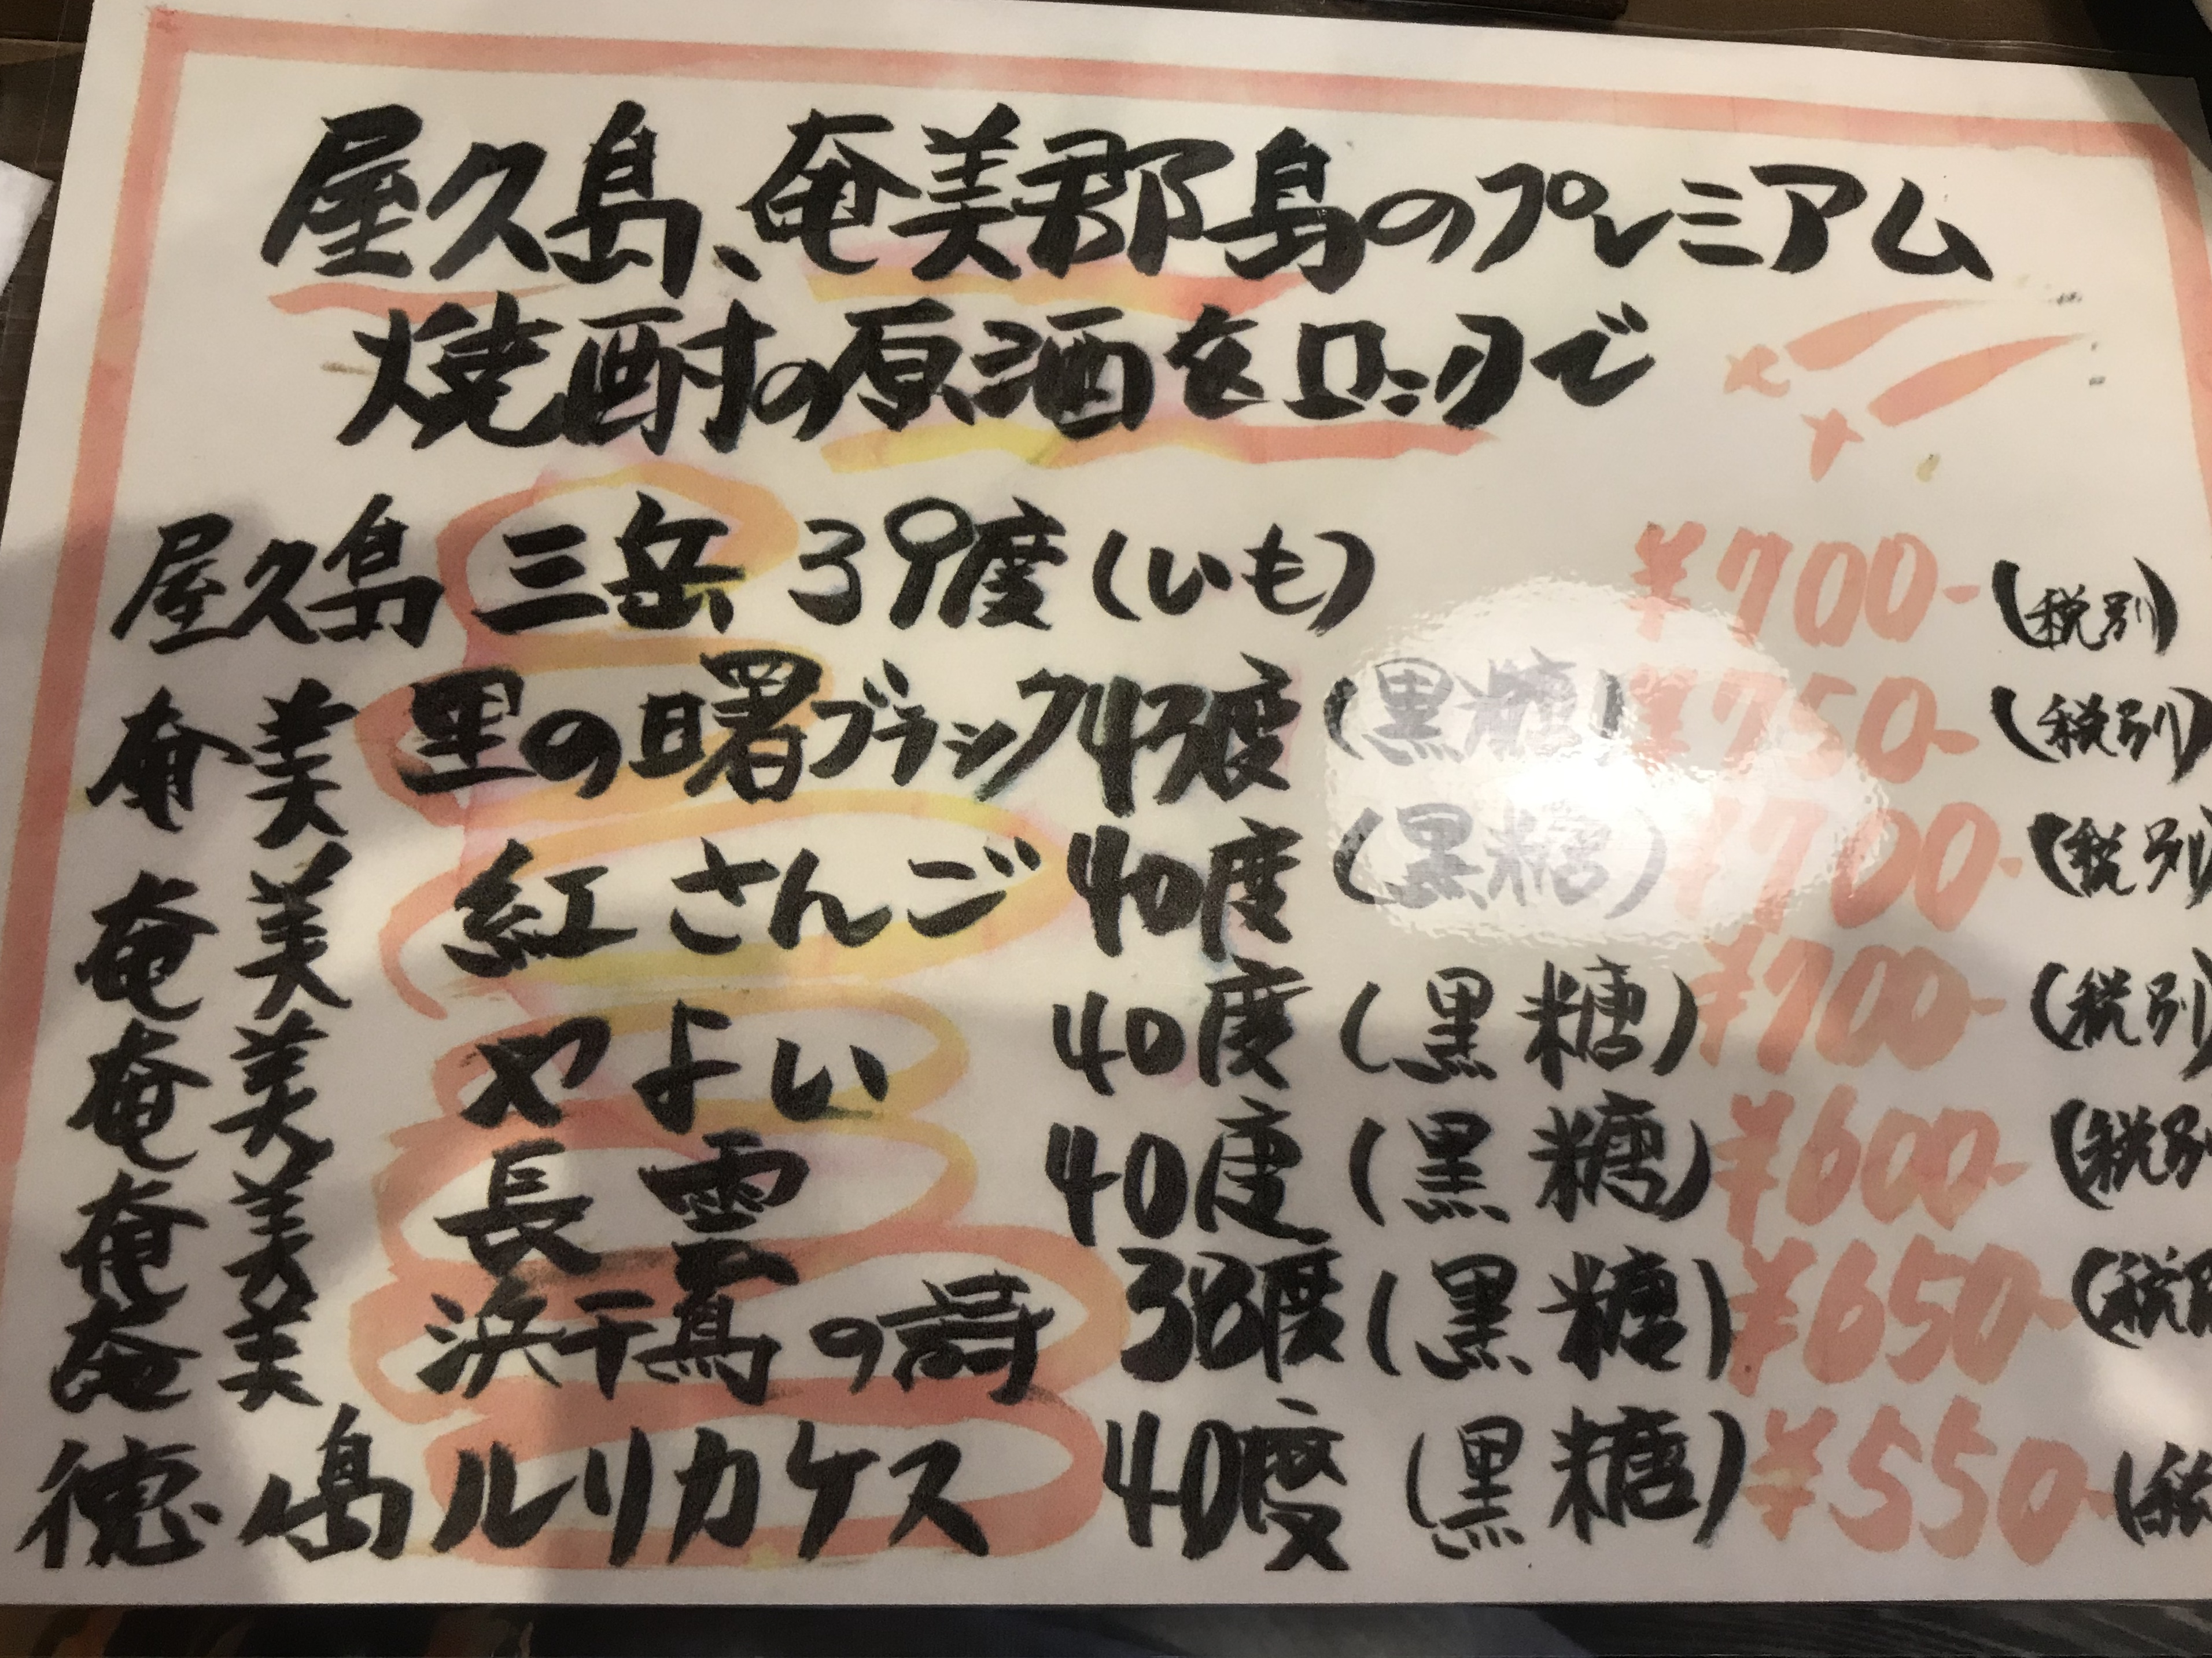 屋久島、奄美郡島のプレミアム
焼酎の原酒をロックで
屋久島 三岳 39度 (いも) ¥700- (税別)
奄美 里の曙ブラック 43度 (黒糖) ¥750- (税別)
奄美 紅さんご 40度 (黒糖) ¥700- (税別)
奄美 やよい 40度 (黒糖) ¥700- (税別)
奄美 長雲 40度 (黒糖) ¥600- (税別
奄美 浜千鳥の詩 38度 (黒糖) ¥650- (税別
徳島 ルリカケス 40度 (黒糖) ¥550- (税